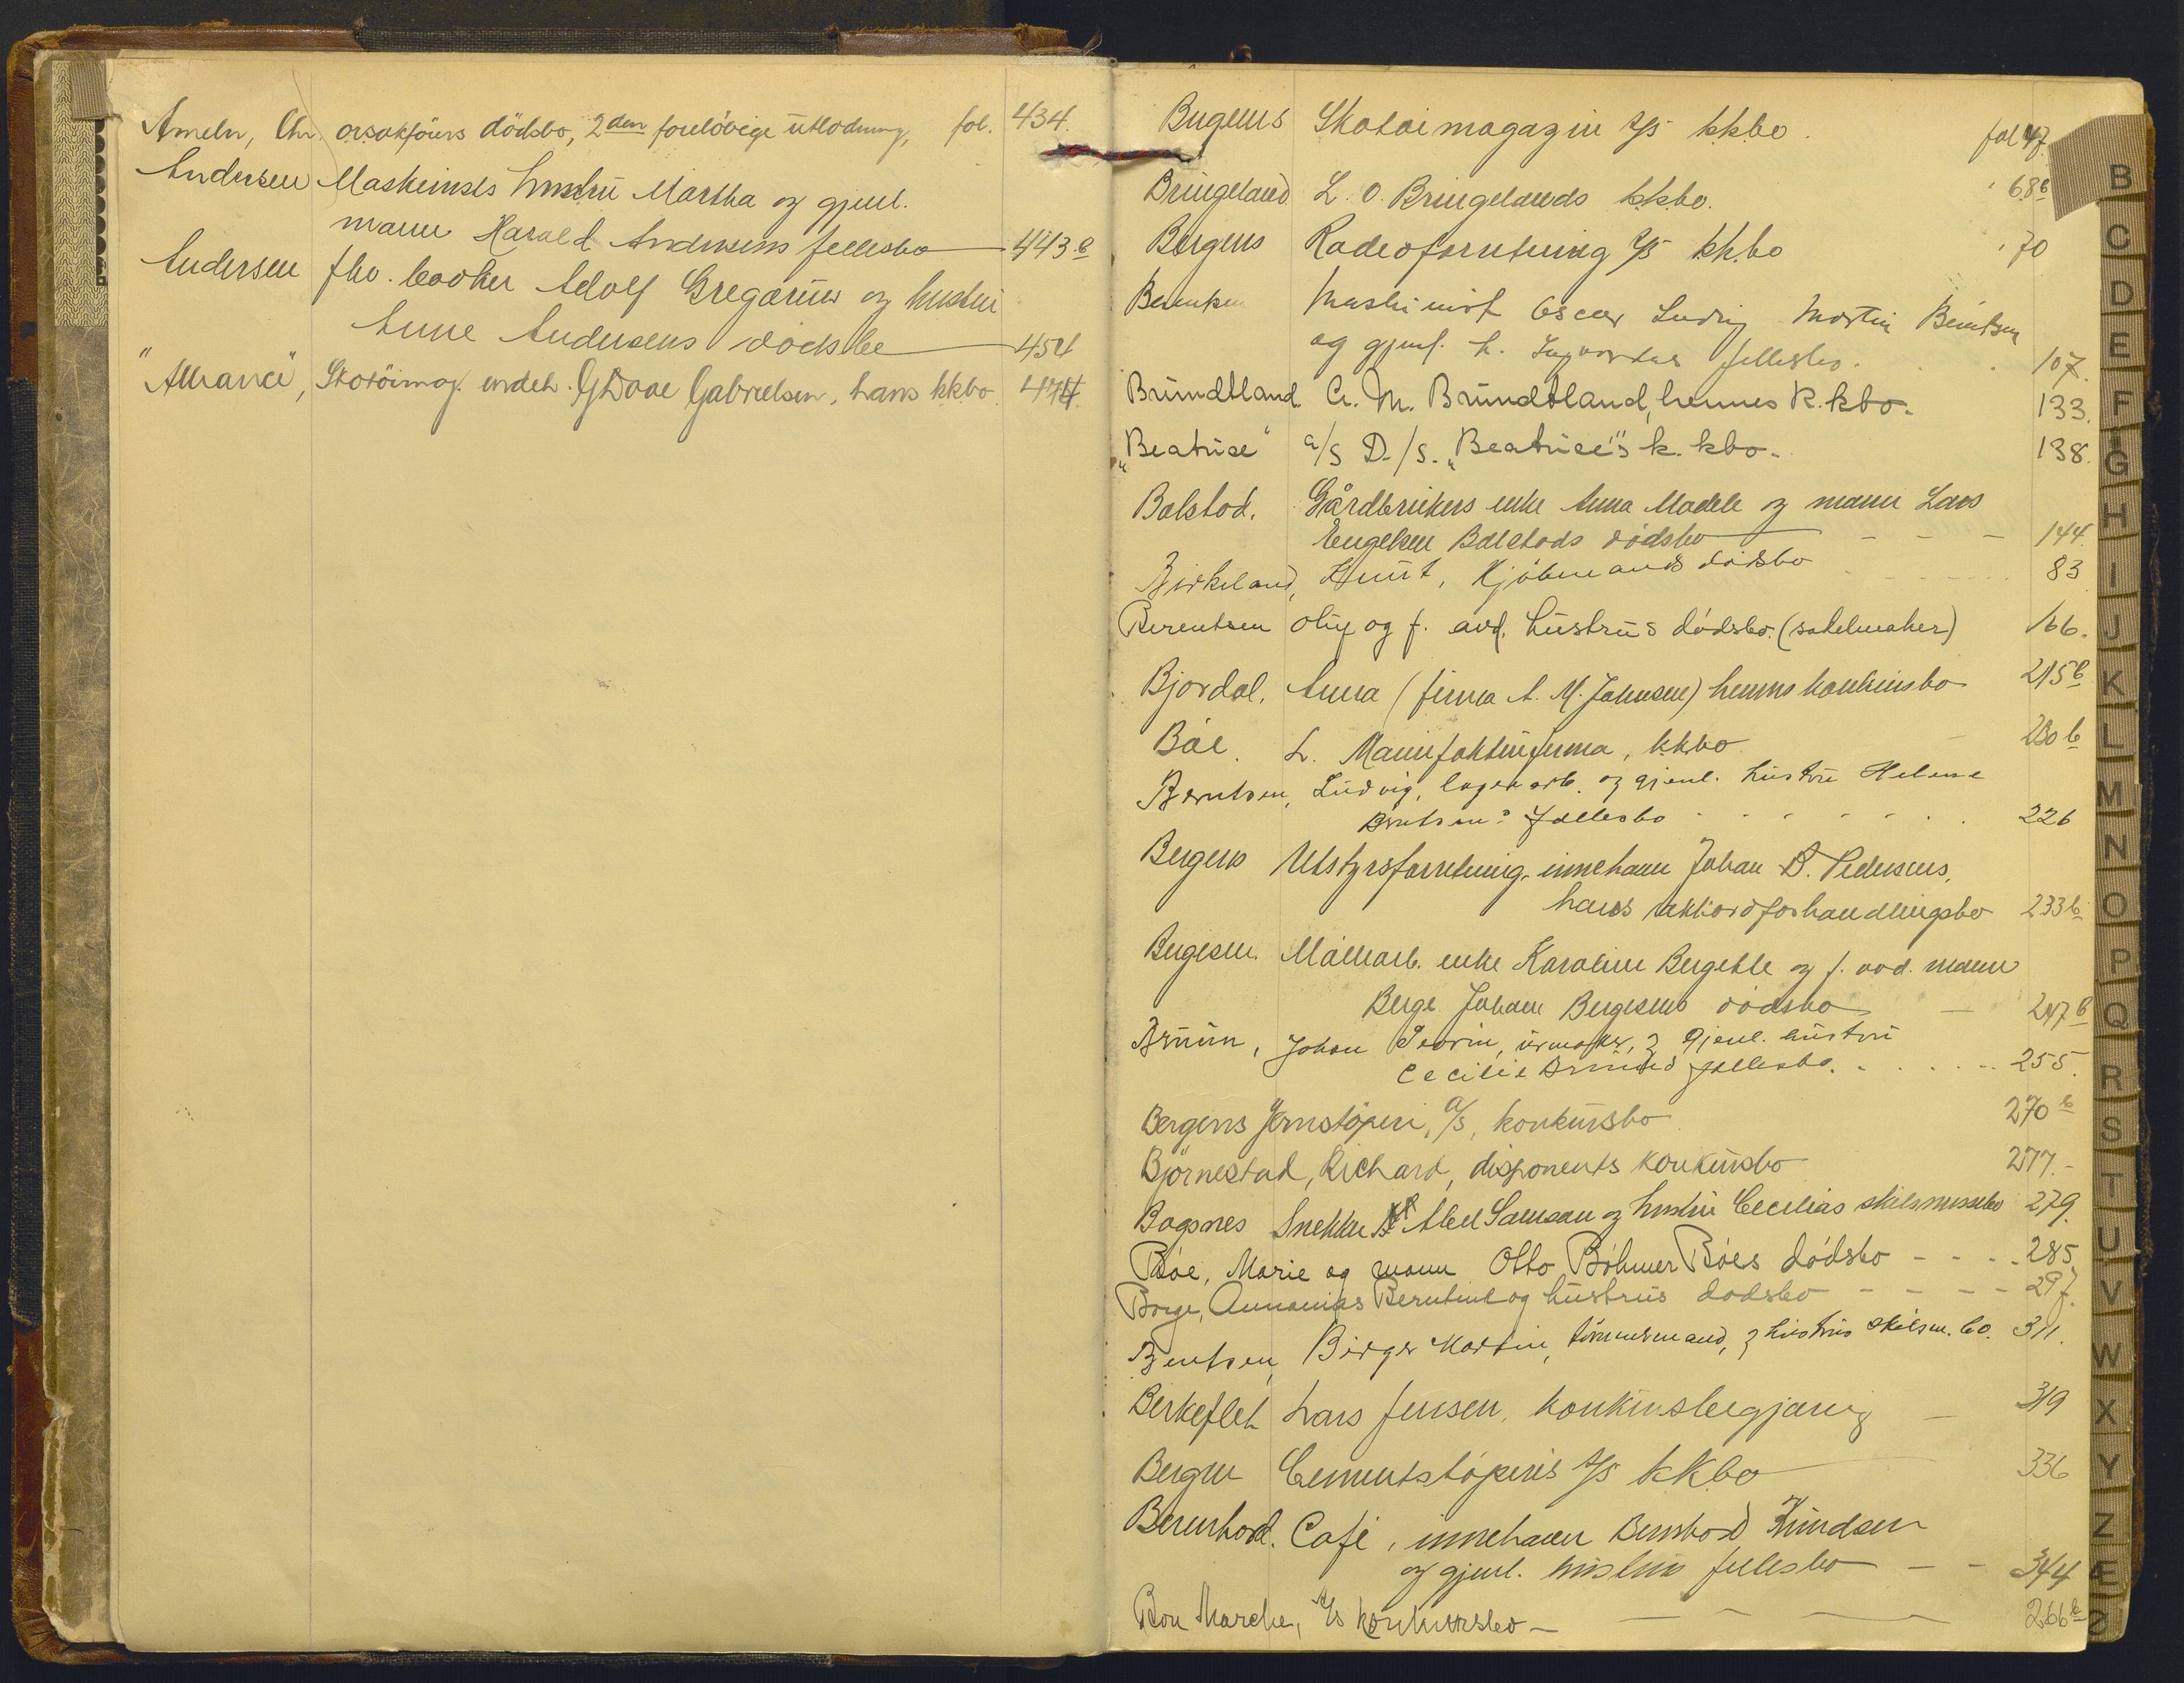 Ameln, Chr. o.r.sakførers dödsbo, 2den foreløbige utlodning, fol. 434.
Andersen Maskinists hustru Martha og gjenl.
mann Harald Andersens fellesbo 443 b
Andersen fhv. Adolf Gregarius og hustru
Anne Andersens dödsbo 454
"Alliance", Skotöimag. indeh. Gabrielsen, hans kkbo. 474.
Bergens Skotøimagazin A/S kkbo. fol 47
Bringeland L. O. Bringelands kkbo. " 68b
Bergens Radeoforretning A/S kkbo " 70
Berntsen Maskinist Oscar Ludvig Martin Berntsen
og gjenl. h. fellesbo. 107.
Brundtland. A. M. Brundtland, hennes k.kbo. 133.
"Beatrice" A/S D./S. "Beatrice"s k. kbo. 138.
Balstad. Gårdbrukers enke Anna Madele og mann Lars
Engelsen Balstads dödsbo - - - 144.
Birkeland, Knut, Kjöbmands dödsbo 83
Berentsen Oluf og f. avd. hustrus dödsbo. (sadelmaker) 166.
Bjordal, Anna (firma A. M. Johnsen) hennes konkursbo 215 b
Böe. L. Manufakturfirma, kkbo - 230 b
Berntsen, Ludvig, lagerarb. og gjenl. hustru Helene
Berntsens fellesbo 226
Bergens Utstyrsforretning, innehaver Johan B. Pedersens,
hans akkordforhandlingsbo 233 b
Bergesen. Mälearb. enke Karoline Bergette og f. avd. mann
Berge Johan Bergesens dödsbo - 247 b
Bruun, Johan Severin, urmaker, & gjenl. hustru
Cecilie Bruuns fellesbo. 255.
Bergens Jernstöperi, A/S, konkursbo 270 b
Björnestad, Richard, disponents konkursbo 277.-
Bognes Snekker Abel Samson og hustru Cecilias skilsmissebo 279.
Böe, Marie og mann Otto Böhmer Böes dödsbo - - - - 285.
Borge, Annanias Berntine og hustrus dödsbo - - - - 297.
Bentsen, Birger Martin, tömmermand, & hustrus skilsm. bo. 311.
Berkeflet Lars Jensen, konkursbegjæring - 319
Bergen Cementstöperis A/S kkbo 336
Bernhard. Café, innehaver Bernhard Knudsen
og gjenl. hustrus fellesbo - - 344
Bon Marche, A/S konkursbo - 266 b
B
C
D
E
F
G
H
I
J
K
L
M
N
O
P
Q
R
S
T
U
V
W
X
Y
Z
Æ
Ø